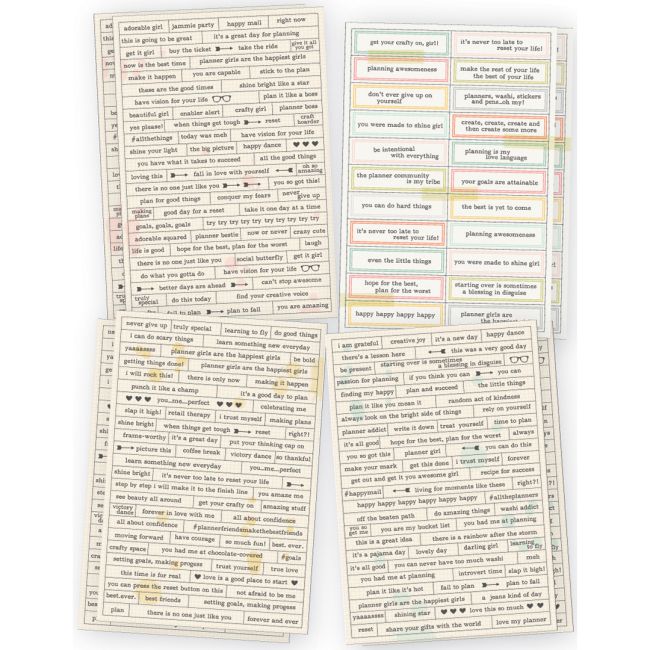 adorable girl jammie party happy mail right now
this is going to be great it's a great day for planning
get it girl buy the ticket take the ride give it all you got
now is the best time planner girls are the happiest girls
make it happen you are capable stick to the plan
these are the good times shine bright like a star
have vision for your life plan it like a boss
beautiful girl enabler alert crafty girl planner boss
yes please! when things get tough reset craft hoarder
#allthethings today was meh have vision for your life
shine your light the big picture happy dance
you have what it takes to succeed all the good things
loving this fall in love with yourself oh so amazing
there is no one just like you you so got this!
plan for good things conquer my fears never give up
making plans good day for a reset take it one day at a time
goals, goals, goals try try try try try try try try try
adorable squared planner bestie now or never crazy cute
life is good hope for the best, plan for the worst laugh
there is no one just like you social butterfly get it girl
do what you gotta do have vision for your life
better days are ahead can't stop awesome
truly special do this today find your creative voice
fail to plan plan to fail you are amazing
get your crafty on, girl!
it's never too late to
reset your life!
planning awesomeness
make the rest of your life
the best of your life
don't ever give up on
yourself
planners, washi, stickers
and pens..oh my!
you were made to shine girl
create, create, create and
then create some more
be intentional
with everything
planning is my
love language
the planner community
is my tribe
your goals are attainable
you can do hard things
the best is yet to come
it's never too late to
reset your life!
planning awesomeness
even the little things
you were made to shine girl
hope for the best,
plan for the worst
starting over is sometimes
a blessing in disguise
happy happy happy happy
planner girls are
the happiest
never give up truly special learning to fly do good things
i can do scary things learn something new everyday
yaaaassss planner girls are the happiest girls be bold
getting things done! planner girls are the happiest girls
i will rock this! there is only now making it happen
punch it like a champ it's a good day to plan
you...me...perfect celebrating me
slap it high! retail therapy i trust myself making plans
shine bright when things get tough reset right?!
frame-worthy it's a great day put your thinking cap on
picture this coffee break victory dance so thankful
learn something new everyday you...me...perfect
shine bright it's never too late to reset your life
step by step i will make it to the finish line you amaze me
see beauty all around get your crafty on amazing stuff
victory dance forever in love with me all about confidence
all about confidence #plannerfriendsmakethebestfriends
moving forward have courage so much fun! best. ever.
crafty space you had me at chocolate-covered #goals
setting goals, making progess trust yourself true love
this time is for real love is a good place to start
you can press the reset button on this not afraid to be me
best.ever. best friends setting goals, making progess
plan there is no one just like you forever and ever
i am grateful creative joy it's a new day happy dance
there's a lesson here this was a very good day
be present starting over is sometimes a blessing in disguise
passion for planning if you think you can you can
finding my happy plan and succeed the little things
plan it like you mean it random act of kindness
always look on the bright side of things rely on yourself
planner addict write it down treat yourself time to plan
it's all good hope for the best, plan for the worst always
you so got this planner girl you can do this
make your mark get this done i trust myself forever
get out and get over yourself girl awesome recipe for success
#happymail living for moments like these right?!
happy happy happy happy happy happy #alltheplanners
off the beaten path do amazing things washi addict
you so get me you are my bucket list you had me at planning
this is a great idea there is a rainbow after the storm
it's a pajama day lovely day darling girl learning to fly
it's all good you can never have too much washi meh
you had me at planning introvert time slap it high!
plan it like it's hot fail to plan plan to fail
planner girls are the happiest girls a jeans kind of day
yaaaassss shining star love this so much
reset share your gifts with the world love my planner